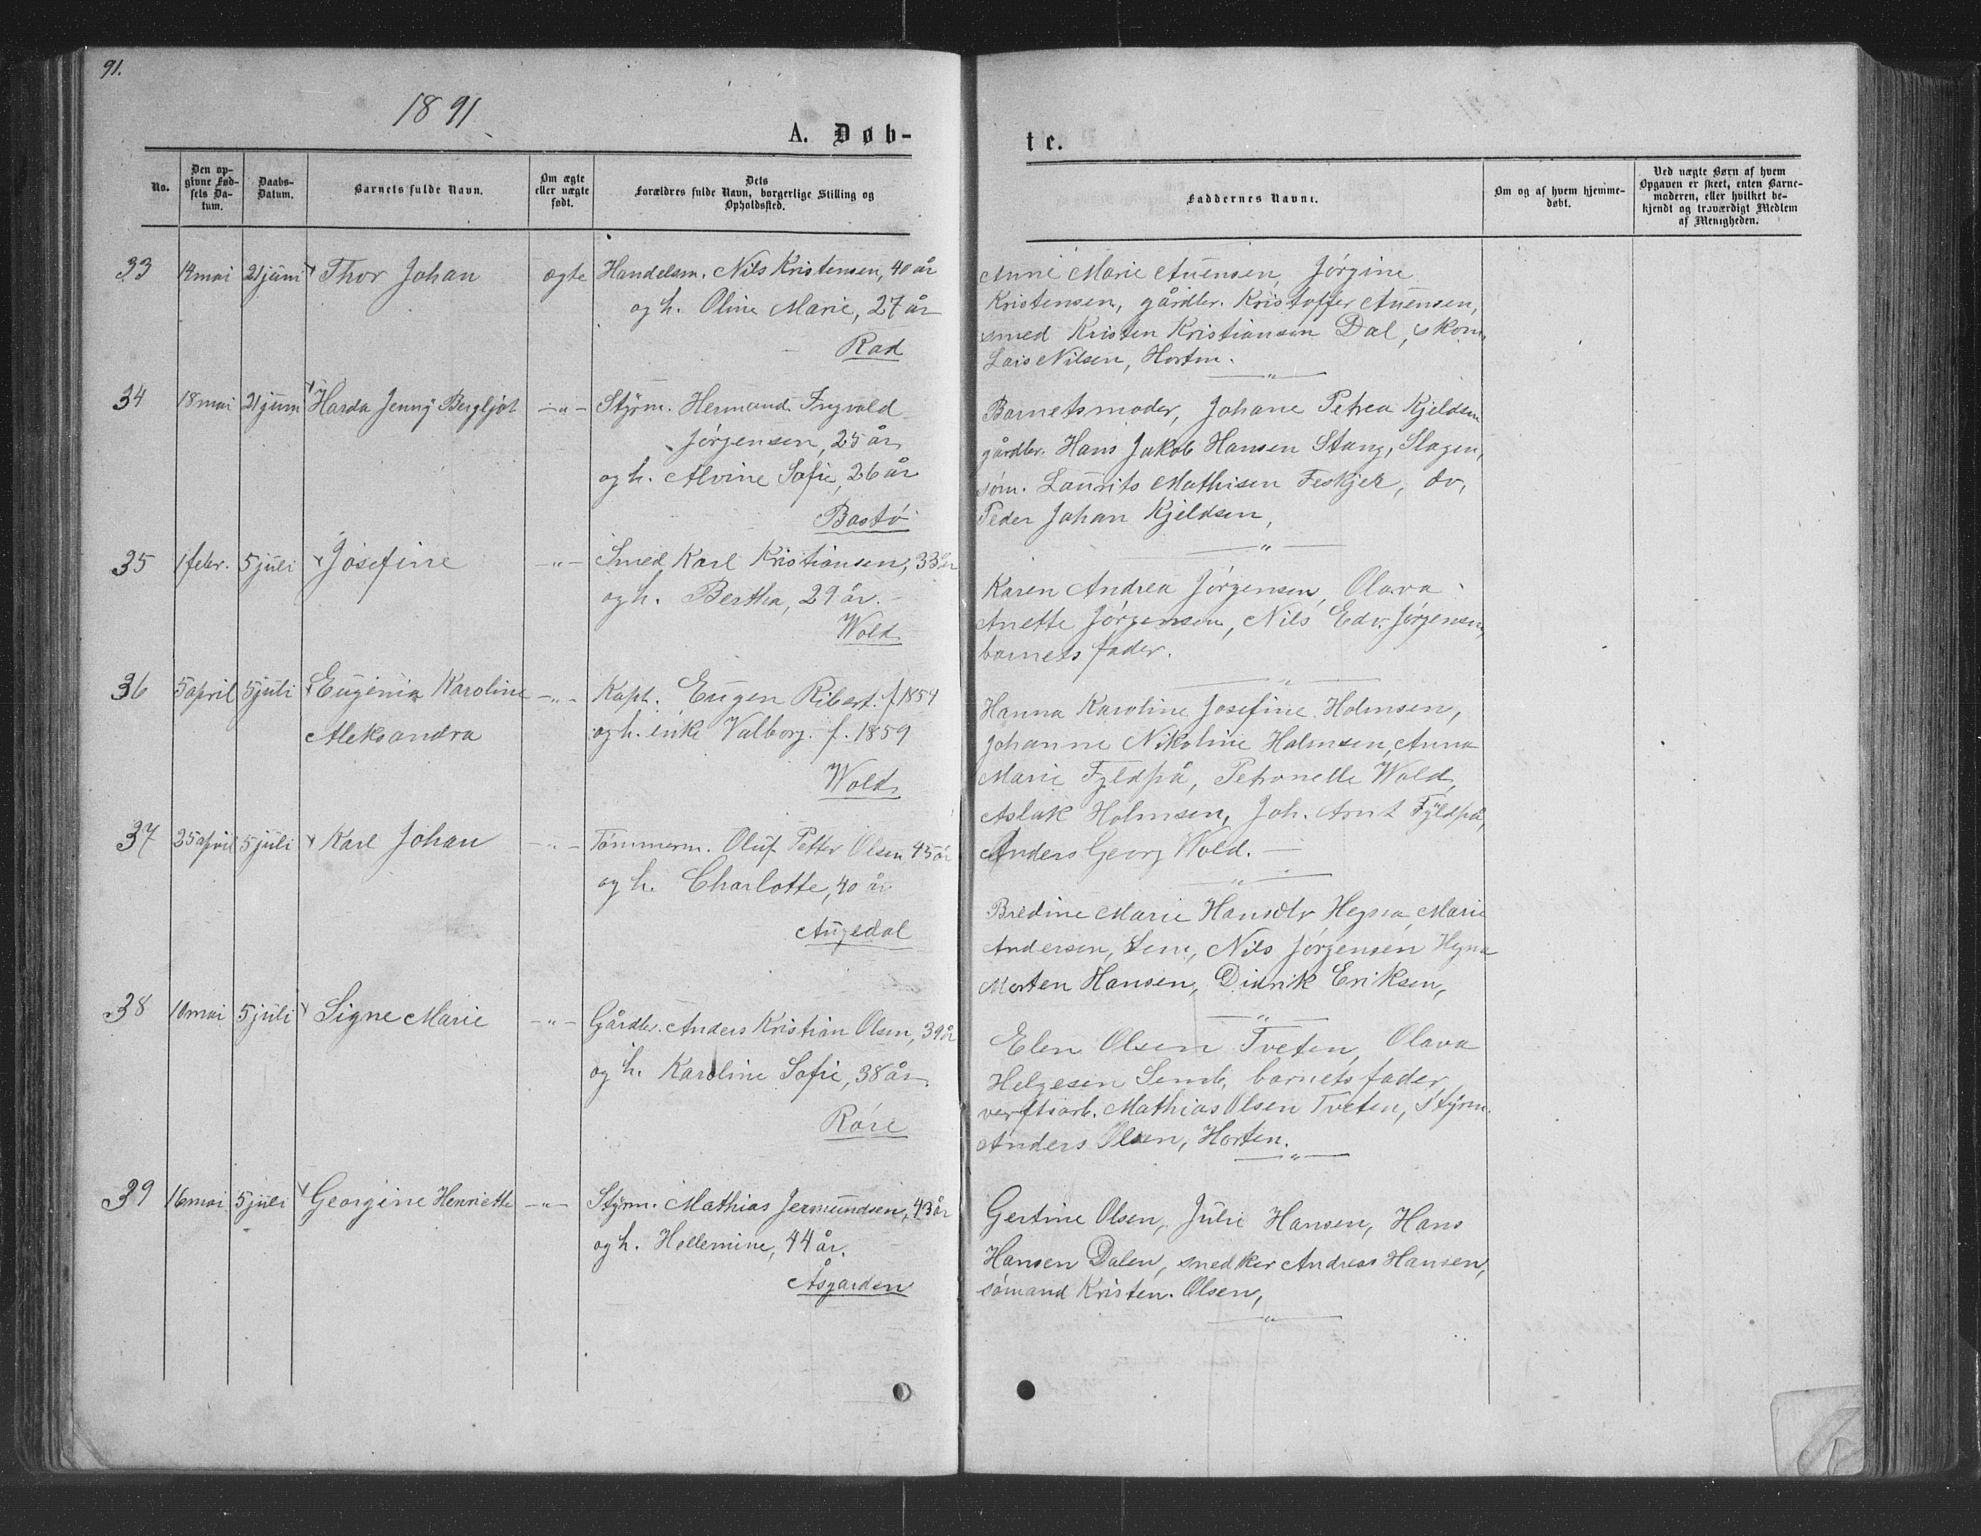 91.
1891
A. Døb-
No.
Den op-
givne Fød-
sels Da-
tum.
Daabs-
Datum.
Barnets fulde Navn.
Om ægte
eller uægte
født.
Dets
Forældres fulde Navn, borgerlige Stilling og
Opholdssted.
33 14 mai 21 juni Thor Johan ægte Handelsm. Nils Kristensen, 40 år
og h. Oline Marie, 27 år
Rad
34 18 mai 21 juni Harda Jenny Bergljot -"- Styrm. Hermand Ingvald
Jørgensen, 25 år
og h. Alvine Sofie, 26 år
Bastø
35 1 febr. 5 juli Josefine -"- Smed Karl Kristiansen, 33 år
og h. Bertha, 29 år.
Wold
36 5 april 5 juli Eugenia Karoline -"- Kapt. Eugen Ribert. f 1854
Aleksandra og h. enke Valborg. f. 1859
Wold
37 25 april 5 juli Karl Johan -"- Tømmerm. Oluf Petter Olsen 45 år
og h. Charlotte, 40 år
Augedal
38 10 mai 5 juli Signe Marie -"- Gårdbr. Anders Kristian Olsen, 39 år
og h. Karoline Sofie, 38 år
Røre
39 16 mai 5 juli Georgine Henriette -"- Styrm. Mathias Jermundsen, 43 år
og h. Hellemine, 44 år.
Åsgarden
te.
Faddernes Navne.
Om og af hvem hjemme-
døbt.
Ved uægte Børn af hvem
Opgaven er skeet, enten Barne-
moderen, eller hvilket be-
kjendt og troværdigt Medlem
af Menigheden.
Anne Marie Auensen, Jørgine
Kristensen, gårdbr. Kristoffer Auensen,
smed Kristen Kristiansen Dal, skom.
Lars Nilsen, Horten.
-"-
Barnets moder, Johane Petrea Kjeldsen
gårdbr. Hans Jakob Hansen Stang, Slagen,
søm. Laurits Mathisen Feskjer, do,
Peder Johan Kjeldsen,
-"-
Karen Andrea Jørgensen, Olava
Anette Jørgensen, Nils Edv. Jørgensen,
barnets fader.
-"-
Hanna Karoline Josefine Holmsen,
Johanne Nikoline Holmsen, Anna
Marie Fyldpå, Petronelle Wold,
Aslak Holmsen, Joh. Arnt Fyldpå,
Anders Georg Wold.
-"-
Bredine Marie Hansdtr Hegna, Marie
Andersen, Sem, Nils Jørgensen Hegna
Morten Hansen, Didrik Eriksen,
-"-
Elen Olsen Tveten, Olava
Helgesen Semb, barnets fader,
verftsarb. Mathias Olsen Tveten, Styrm.
Anders Olsen, Horten.
-"-
Gertine Olsen, Julie Hansen, Hans
Hansen Dalen, snedker Andreas Hansen,
sømand Kristen Olsen,
-"-